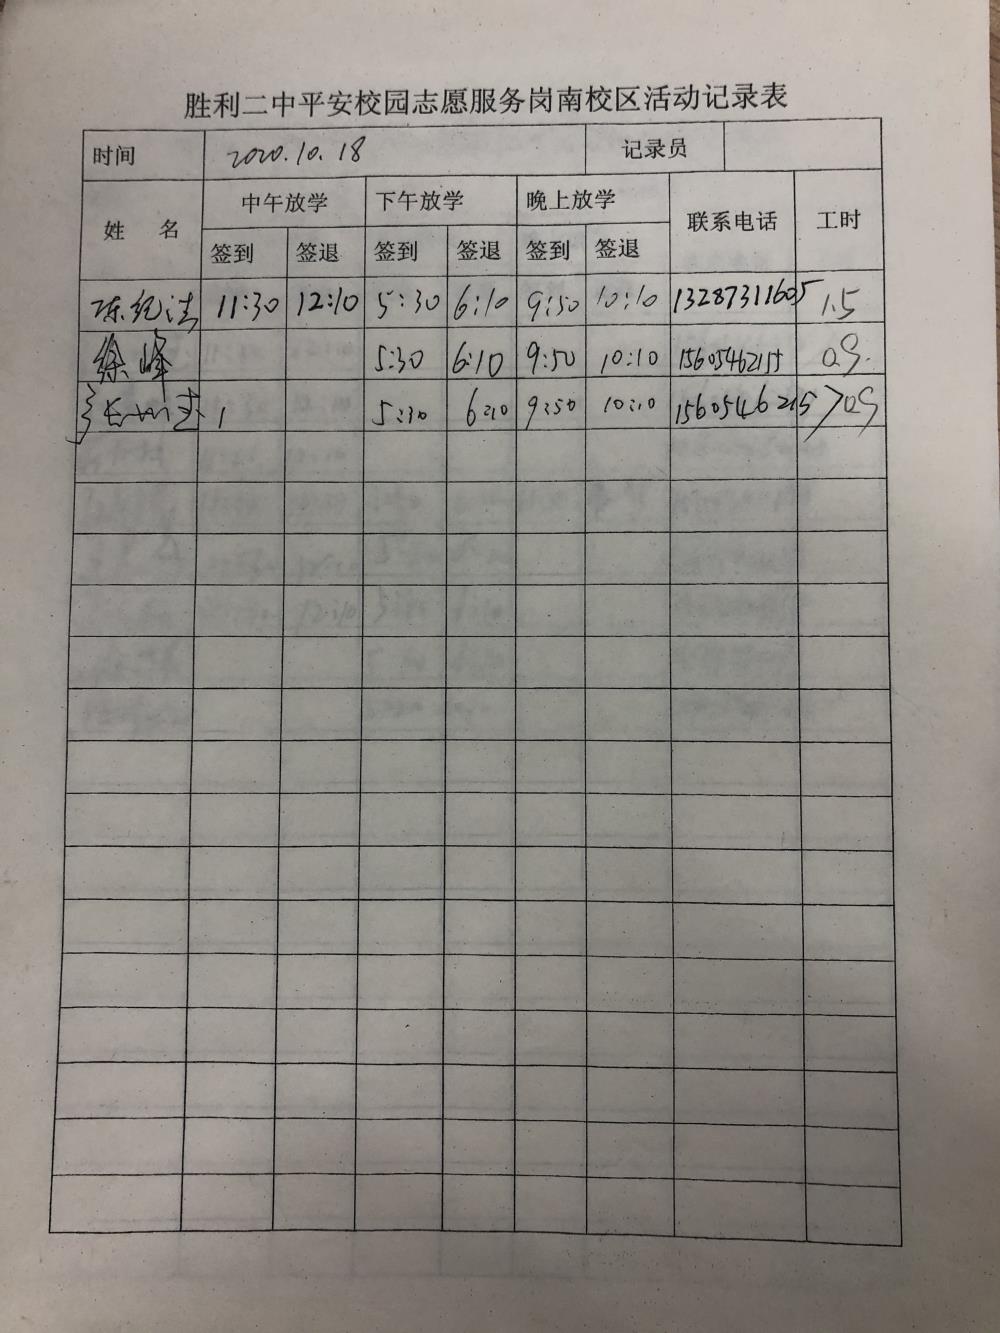 胜利二中平安校园志愿服务岗南校区活动记录表
时间 2020.10.18 记录员
姓 名 中午放学 下午放学 晚上放学 联系电话 工时
签到 签退 签到 签退 签到 签退
陈纪法 11:30 12:10 5:30 6:10 9:50 10:10 13287311605 1.5
徐峰 5:30 6:10 9:50 10:10 0.9.
5:30 6:10 9:50 10:10 0.9